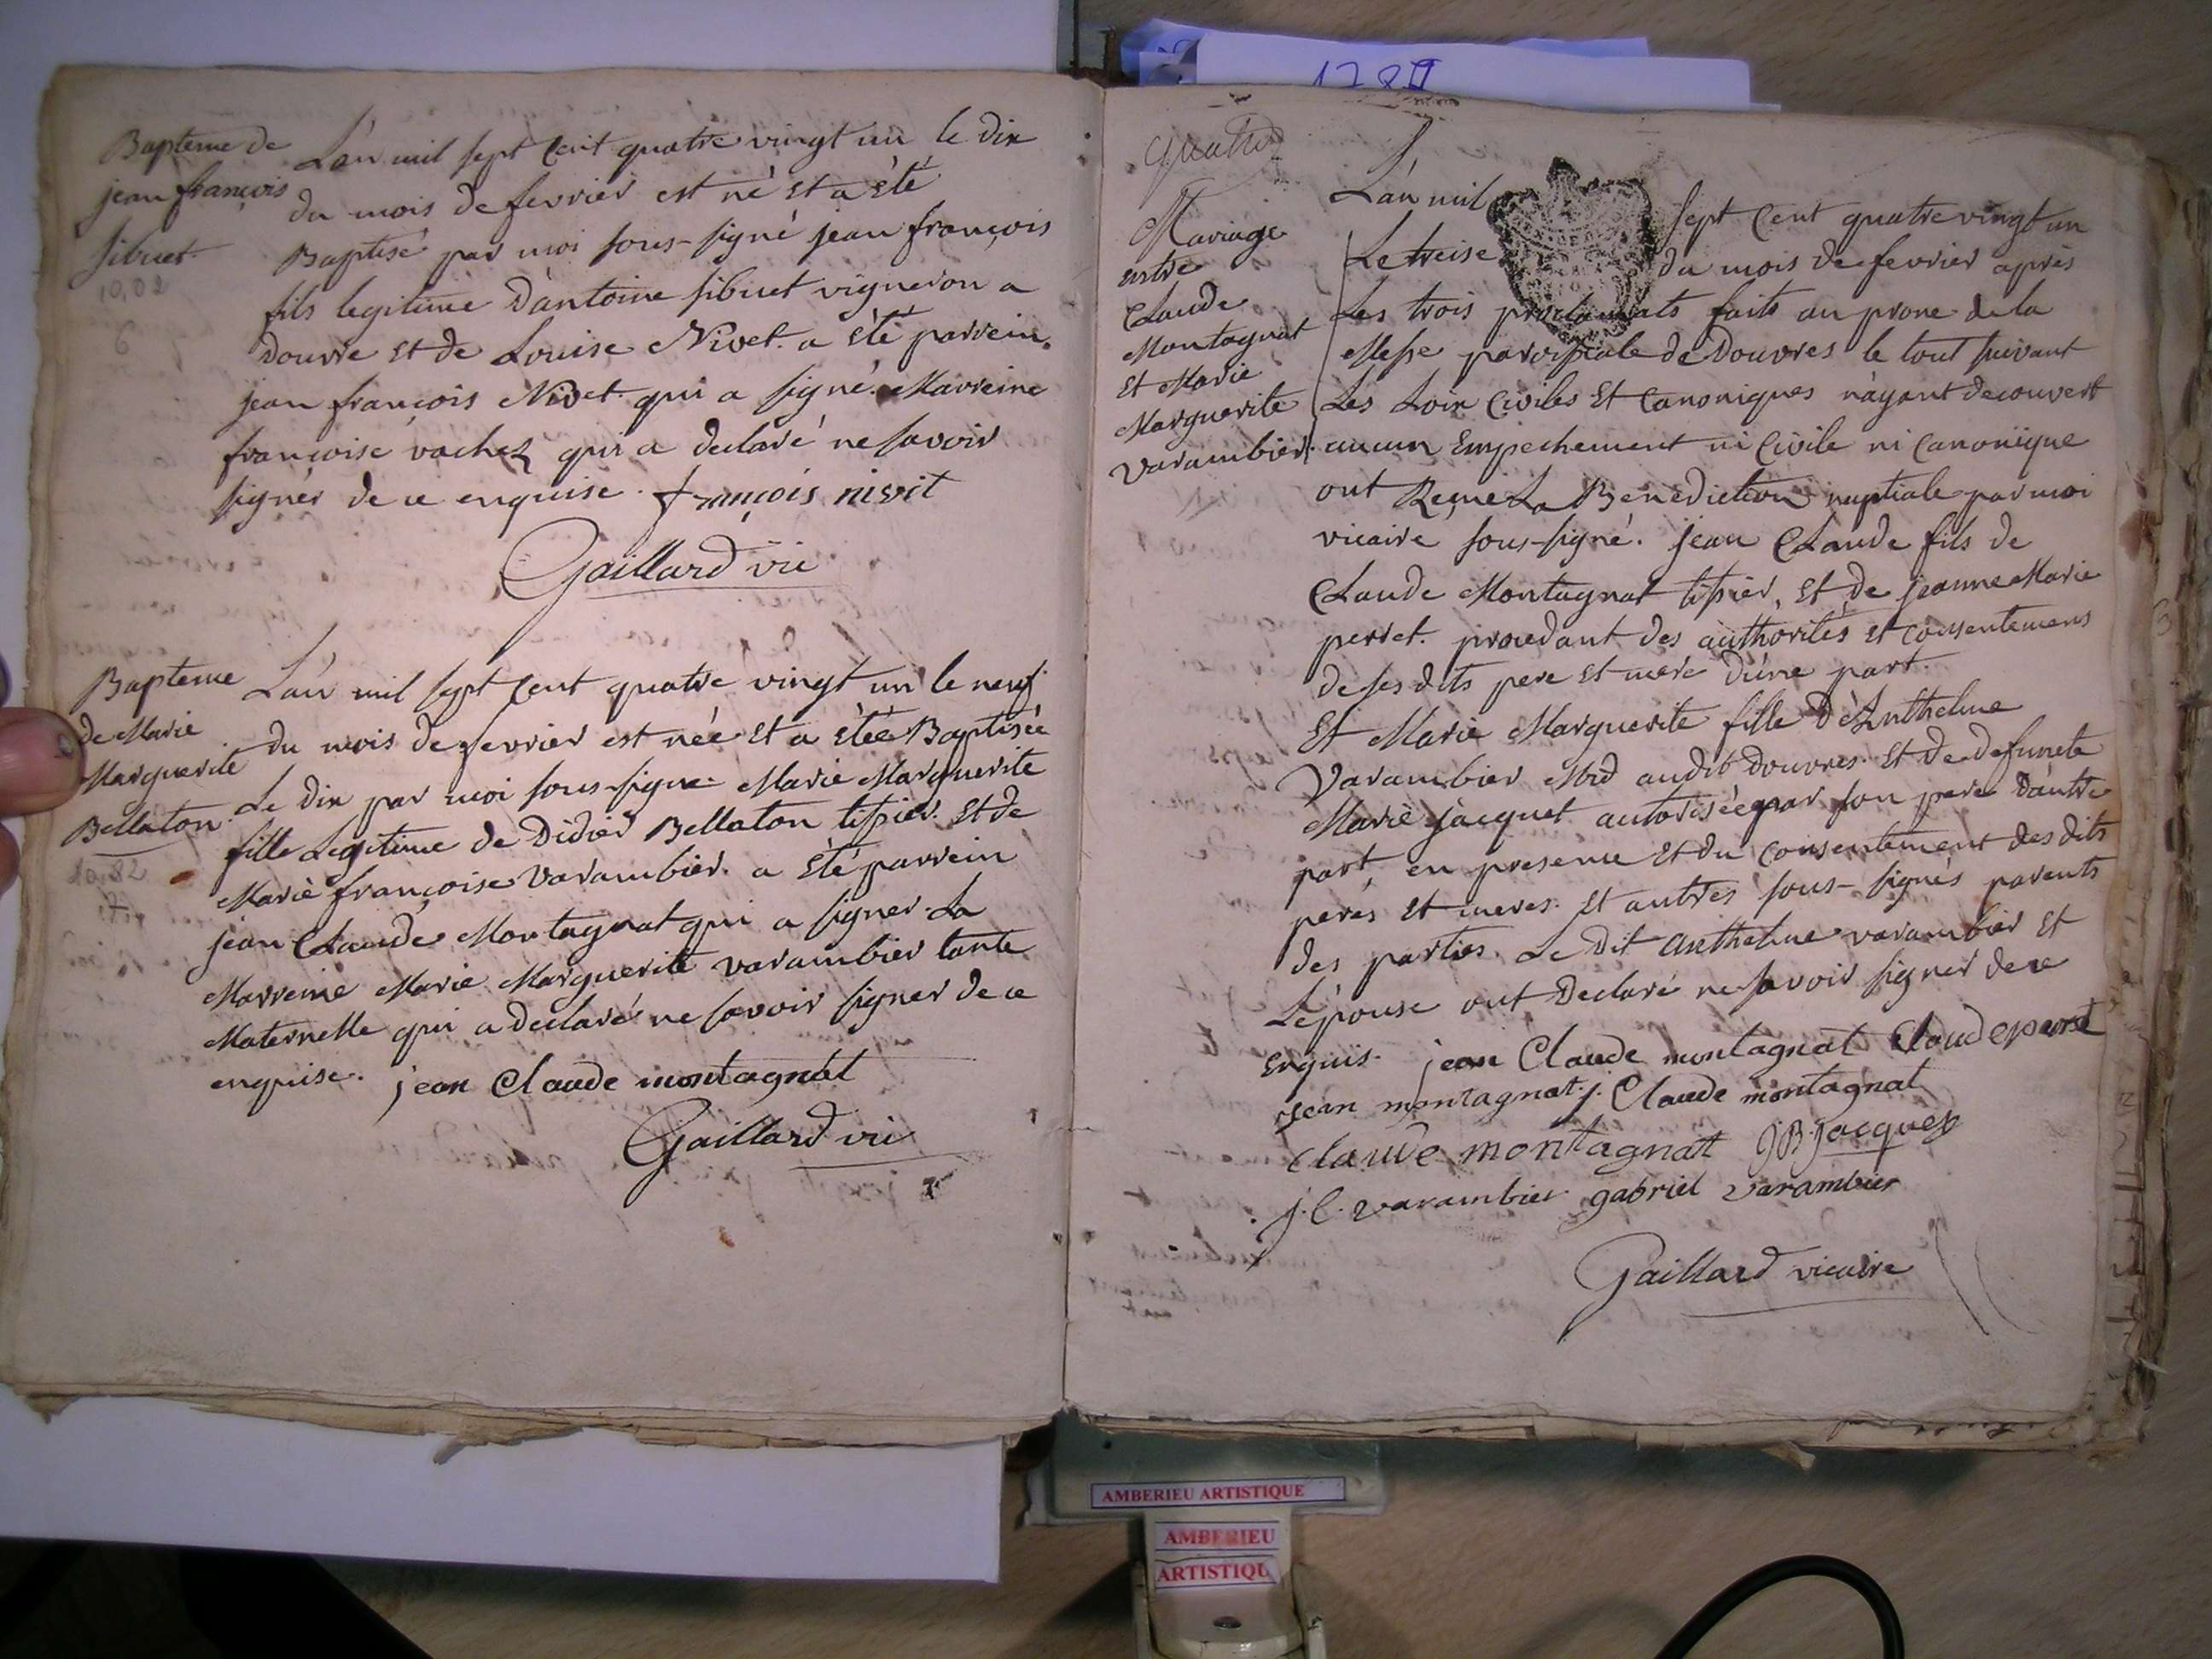 1781
Bapteme de
jean françois
sibuet
10,02
6
L'an mil sept cent quatre vingt un le dix
du mois de fevrier est né et a été
Baptisé par moi sous-signé jean françois
fils legitime d'antoine sibuet vigneron a
douvre et de Louise Nivet. a été parrein.
jean françois Nivet qui a signé. Marreine
françoise vachez qui a declaré ne savoir
signer de ce enquise. françois nivit
Gaillard vic
Bapteme
de Marie
Marguerite
Bellaton.
L'an mil sept cent quatre vingt un le neuf
du mois de fevrier est née et a étée Baptisée
Le dix par moi sous-signe Marie Marguerite
fille Legitime de Didier Bellaton tissier. et de
Marie françoise varambier. a été parrein
jean Claude Montagnat qui a signer. La
Marreine Marie Marguerite varambier tante
Maternelle qui a declaré ne savoir signer de ce
enquise. jean Claude montagnat
Gaillard vic
quatre
Mariage
entre
Claude
Montagnat
et Marie
Marguerite
varambier.
L'an mil sept cent quatre vingt un
Le treise du mois de fevrier après
Les trois proclamats faits au prone de la
Messe paroissiale de Douvres le tout suivant
Les Loix Civiles et Canoniques n'ayant decouvert
aucun Empechement ni Civile ni Canonique
ont Reçue La Benediction nuptiale par moi
vicaire sous-signé. jean Claude fils de
Claude Montagnat tissier, et de jeanne Marie
perret. procedant des authorités et consentemens
de ses dits pere et mere d'une part.
Et Marie Marguerite fille d'Anthelme
Varambier Md audit Douvres. et de defuncte
Marie jacquet autorisée par son pere d'autre
part, en presence et du consentement des dits
peres et meres. et autres sous-signés parents
des parties. Le Dit anthelme varambier et
L'épouse ont Declaré ne savoir signer de ce
enquis. jean Claude montagnat Claude peret
jean montagnat j. Claude montagnat
claude montagnat JB jacquet
j. C. varambier gabriel varambier
Gaillard vicaire
AMBERIEU ARTISTIQUE
AMBERIEU
ARTISTIQU